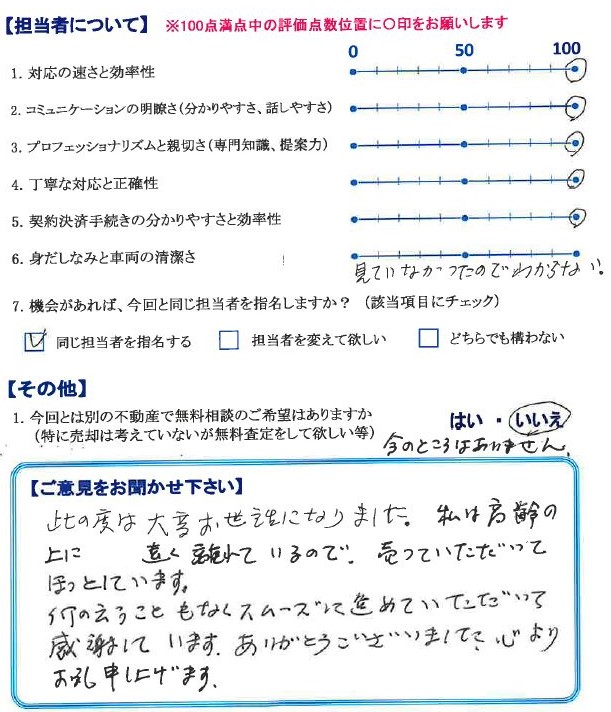 【担当者について】 ※100点満点中の評価点数位置に〇印をお願いします
0 50 100
1. 対応の速さと効率性
2. コミュニケーションの明瞭さ(分かりやすさ、話しやすさ)
3. プロフェッショナリズムと親切さ(専門知識、提案力)
4. 丁寧な対応と正確性
5. 契約決済手続きの分かりやすさと効率性
6. 身だしなみと車両の清潔さ
見ていなかったのでわからない!
7. 機会があれば、今回と同じ担当者を指名しますか? (該当項目にチェック)
同じ担当者を指名する 担当者を変えて欲しい どちらでも構わない
【その他】
1. 今回とは別の不動産で無料相談のご希望はありますか はい ・ いいえ
(特に売却は考えていないが無料査定をして欲しい等) 今のところはありません。
【ご意見をお聞かせ下さい】
此の度は大変お世話になりました。私は高齢の
上に 遠く離れているので、売っていただいて
ほっとしています。
何の云うこともなくスムーズに進めていただいて
感謝して います。ありがとうございまして、心より
お礼申し上げます。